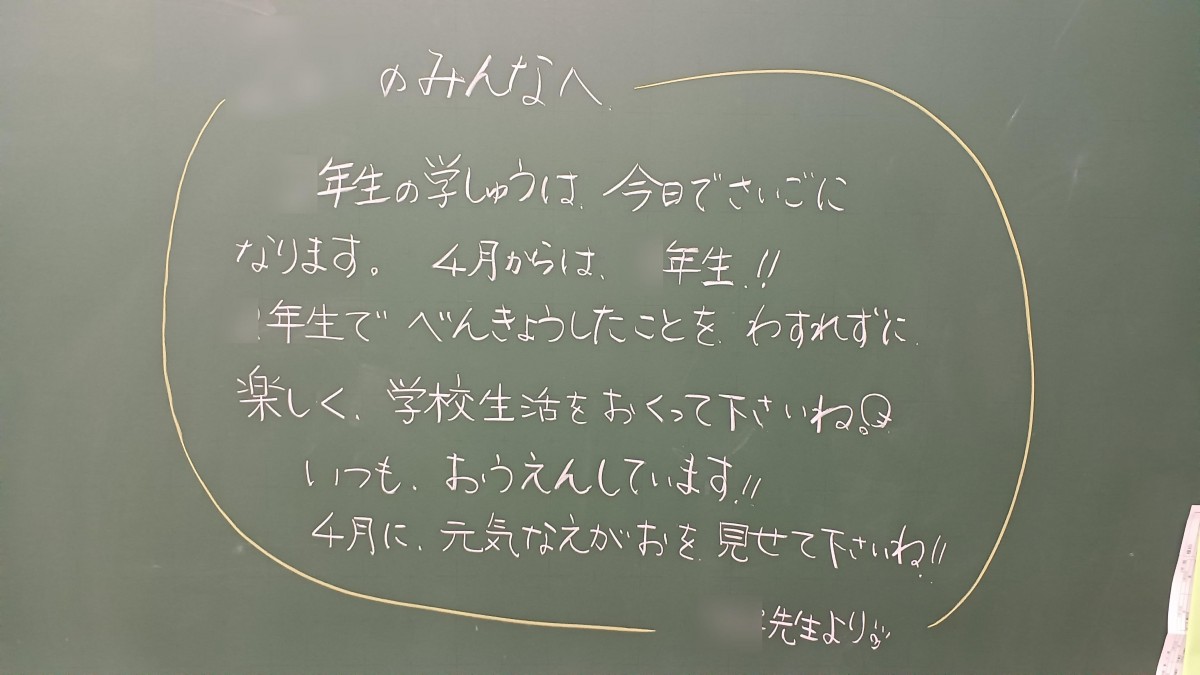 のみんなへ
年生の学しゅうは、今日でさいごに
なります。 4月からは、 年生!!
年生で べんきょうしたことを、わすれずに、
楽しく、学校生活をおくって下さいね。
いつも、おうえんしています!!
4月に、元気なえがおを見せて下さいね!!
先生より